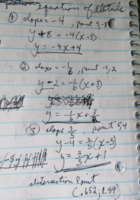 equations of altitude
① slope = -4, point 3,-8
y+8 = -4(x-3)
y = -4x+4
② slope = -1/6, point -5,2
y-2 = -1/6(x+5)
y = -1/6x +
③ slope 3/5, point 5,4
y-4 = 3/5(x-5)
y = 3/5x+1
intersection point
(.652, 1.39)